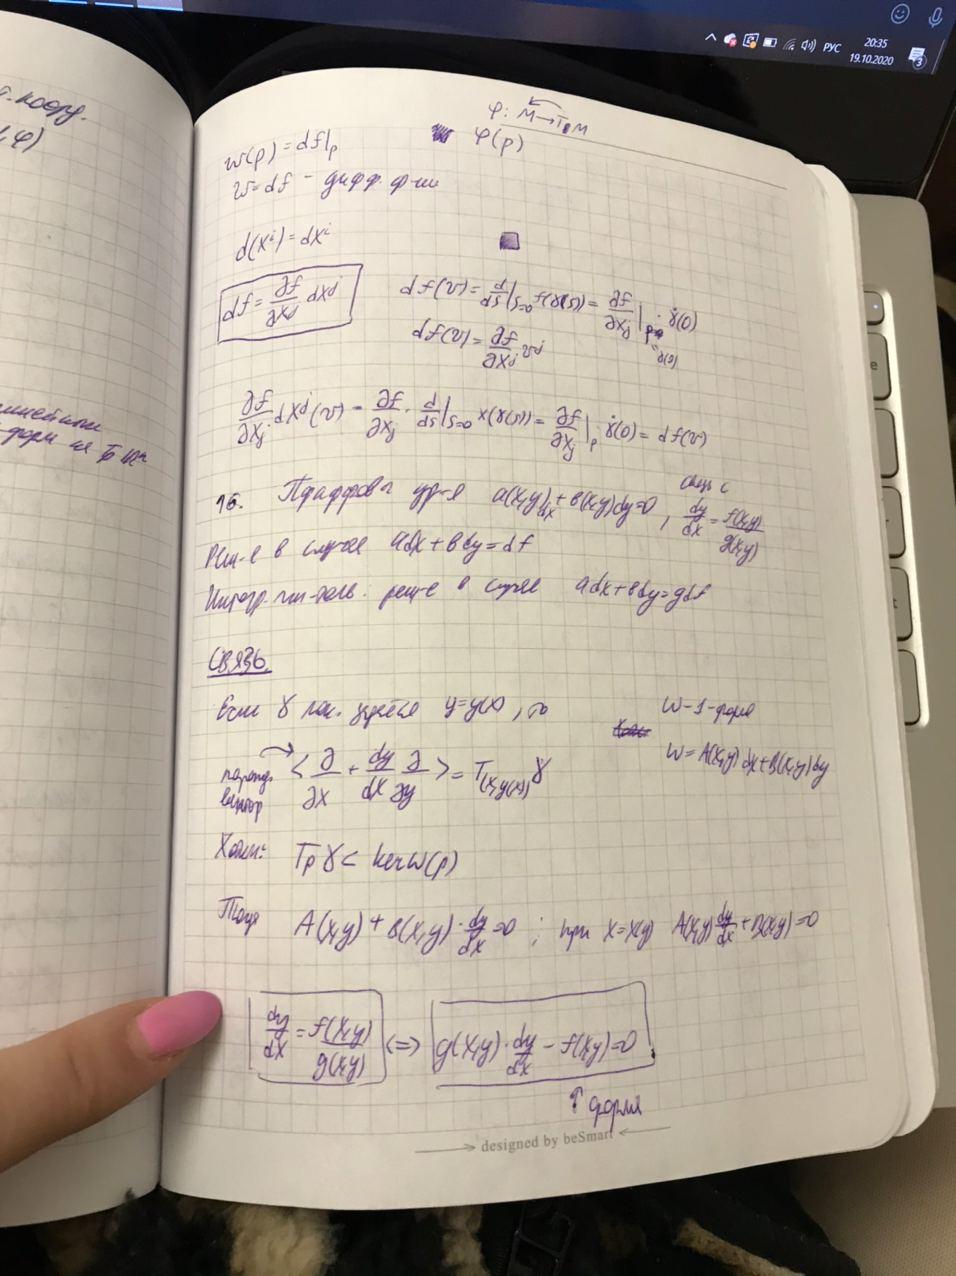 РУС
20:35
19.10.2020
3
г. коорд.
φ)
φ: M → TM
φ(p)
w(p) = df|p
w = df - дифф. ф-ии
d(xⁱ) = dxⁱ
df = ∂f/∂xj dxʲ
df(v) = d/ds|s=0 f(γ(s)) = ∂f/∂xj|p · γ̇(0)
γ(0)
df(v) = ∂f/∂xj vʲ
∂f/∂xj dxʲ(v) = ∂f/∂xj · d/ds|s=0 x(γ(s)) = ∂f/∂xj|p γ̇(0) = df(v)
16. Пфаффовы ур-я a(x,y)dx + b(x,y)dy=0, связь с dy/dx = f(x,y)/g(x,y)
Реш-е в случае adx + bdy = df
Интегр. мн-тель. реш-е в случае adx+bdy=gdf
СВЯЗЬ
Если γ y=y(x), то
w - 1-форма
w = A(x,y)dx+B(x,y)dy
вектор <∂/∂x + dy/dx ∂/∂y> = T(x,y(x))γ
Хотим: Tpγ ⊂ ker w(p)
Тогда A(x,y) + B(x,y) · dy/dx = 0 ; при x=x(y) A(x,y) dy/dx + B(x,y)=0
dy/dx = f(x,y)/g(x,y) <=> g(x,y) · dy/dx - f(x,y)=0
↑ форма
designed by beSmart